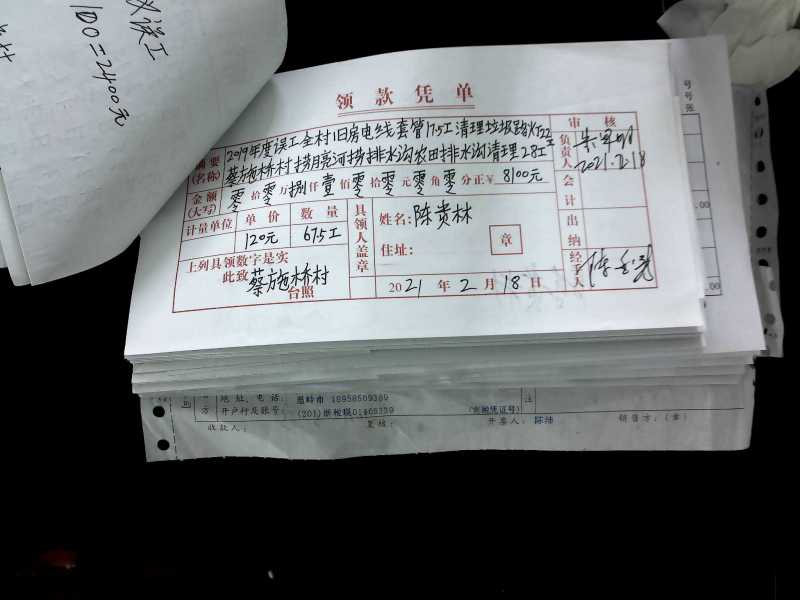 误工
100=2400元
领款凭单
摘要(名称)
2019年度误工全村旧房电线套管17.5工清理垃圾路水沟22工
蔡施桥村捞月亮河捞排水沟农田排水沟清理28工
金额(大写) 零拾零万捌仟壹佰零拾零元零角零分正¥8100元
计量单位 单价 数量
120元 67.5工
上列具领数字是实
此致 蔡施桥村
台照
具领人盖章
姓名:陈贵林
住址:
章
2021年2月18日
审核
负责人
2021.2.18
会计
出纳
经手人
号
号
张
地址、电话: 温岭市 18958509389
方 开户行及账号: (201)浙税限01468339
(完税凭证号)
注
收款人:
复核:
开票人: 陈灿
销售方:(章)